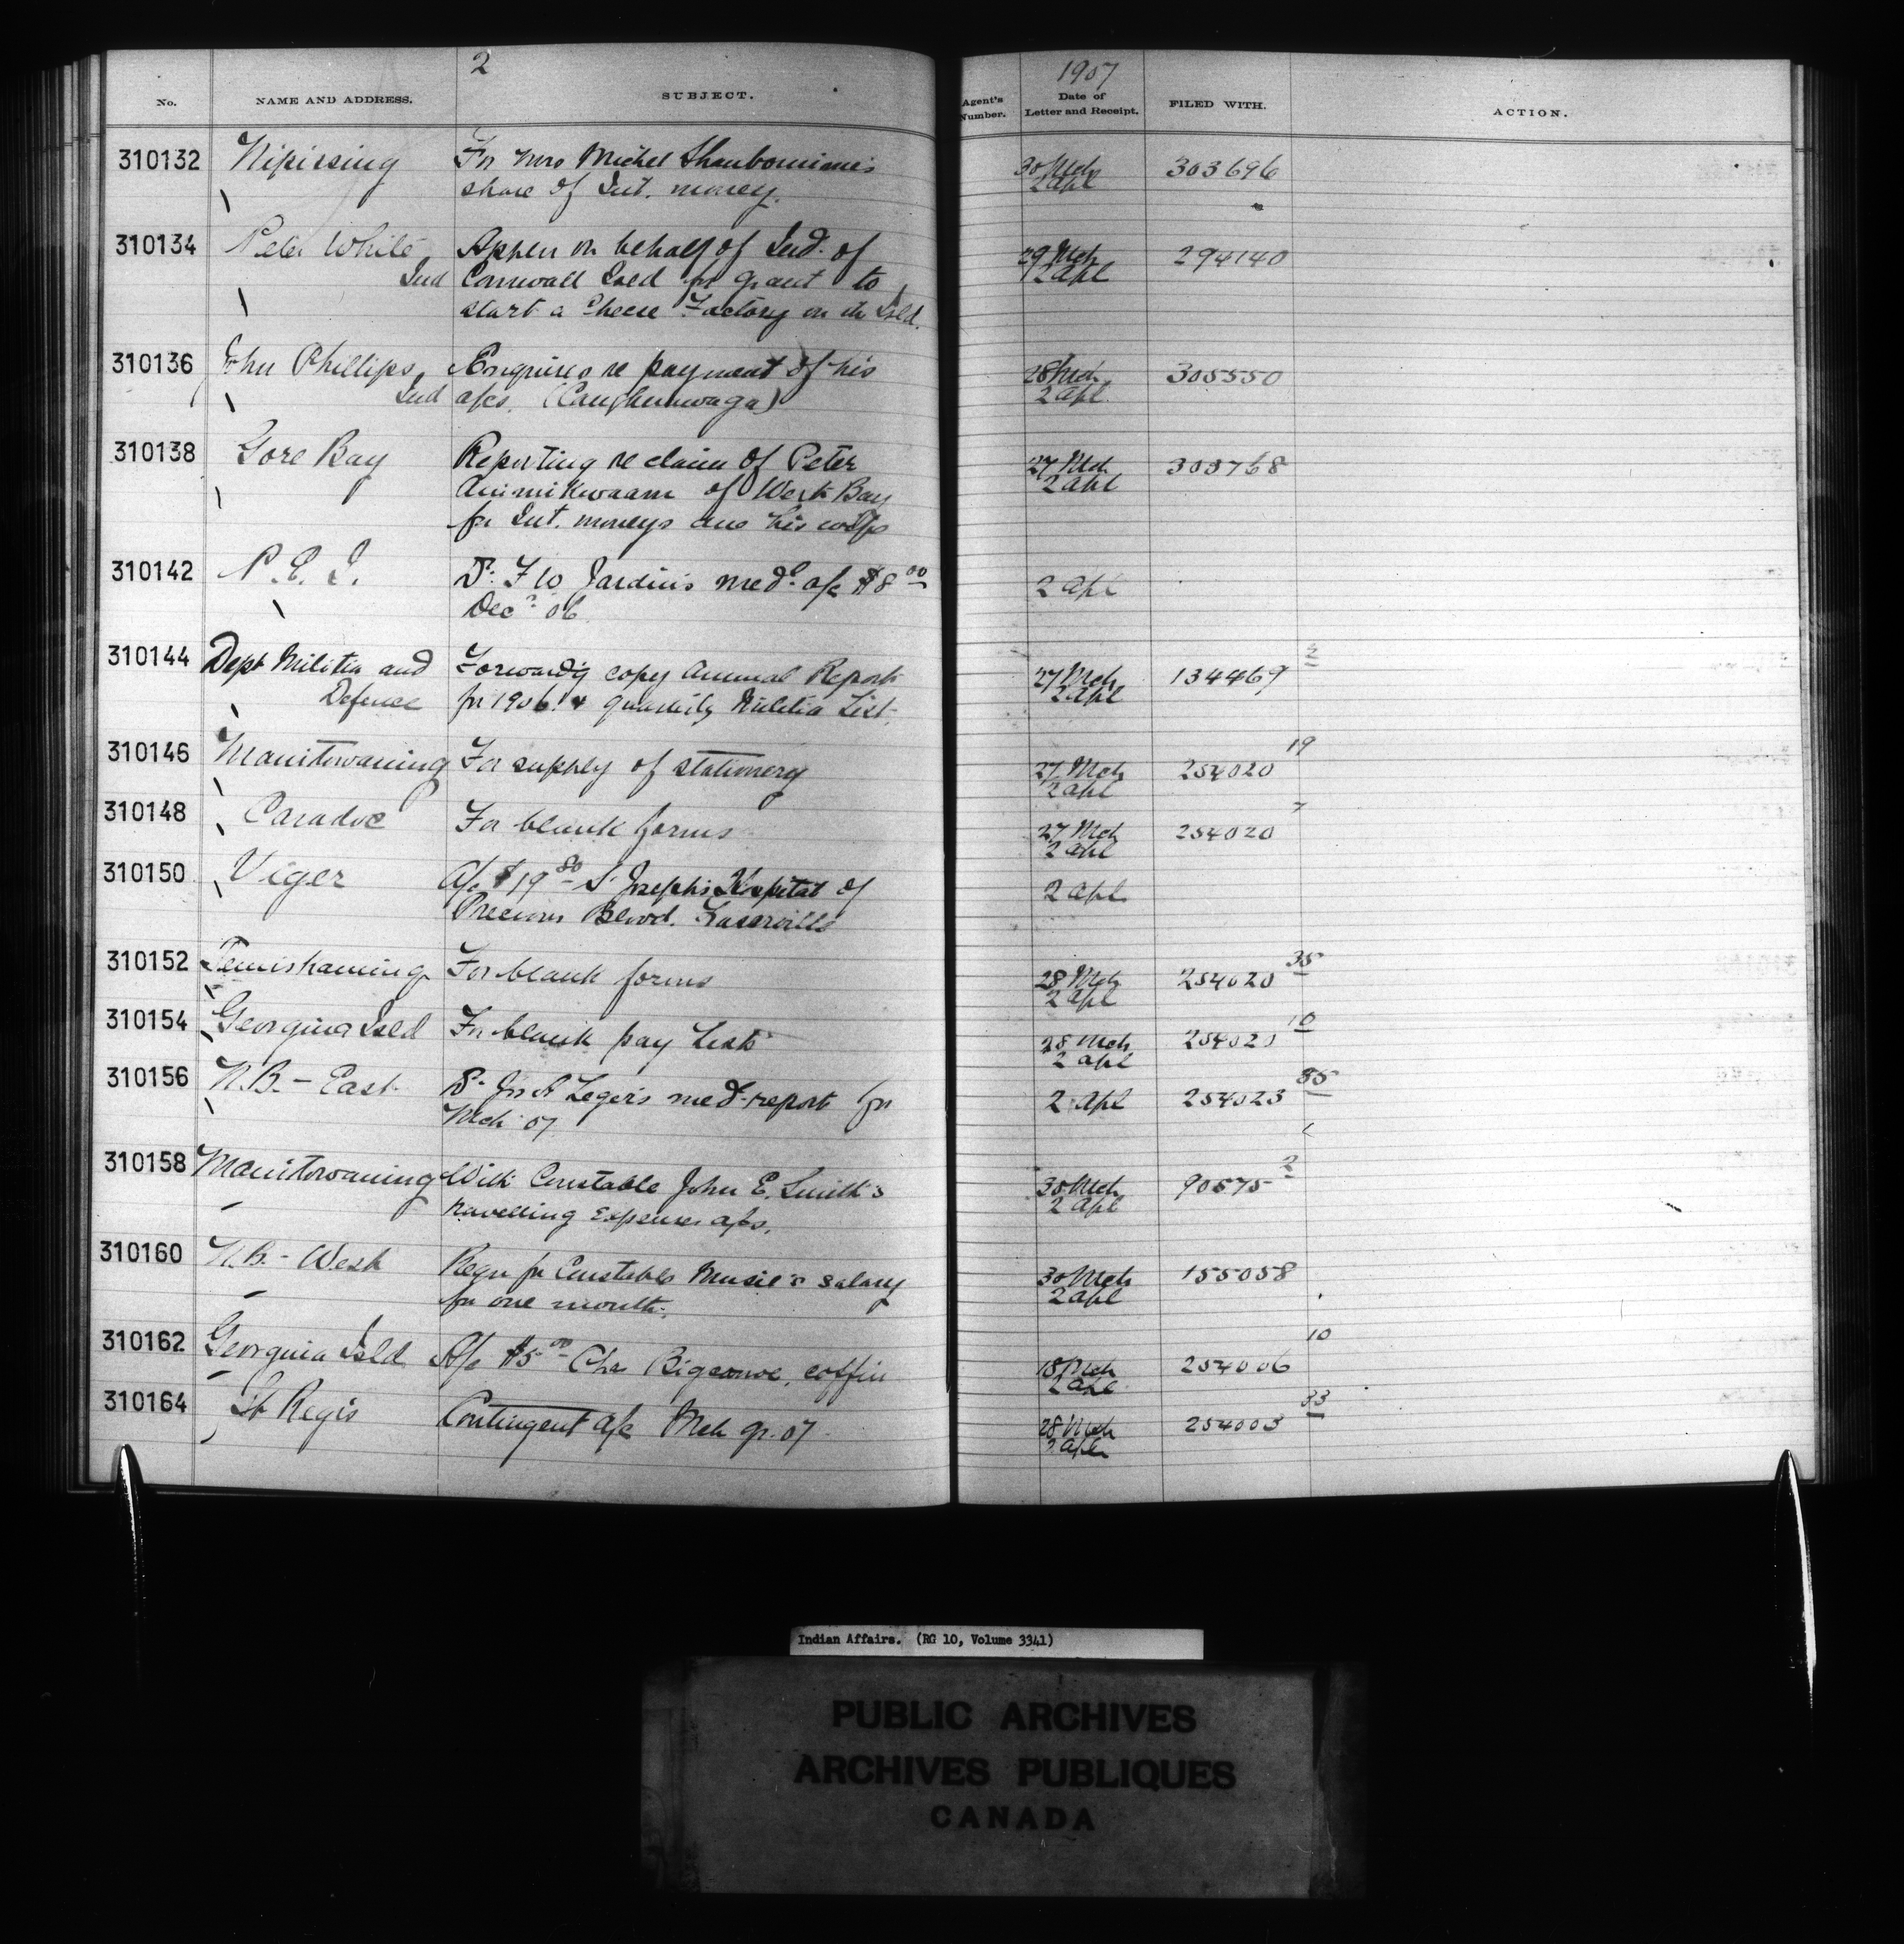 2
1907
No. NAME AND ADDRESS. SUBJECT. Agent's Number. Date of Letter and Receipt. FILED WITH. ACTION.
310132 Nipissing For Mrs Michel 30 Mch 303696
share of Int. money. 2 Apl
310134 Peter White Appln on behalf of Ind. of 29 Mch 294140
Ind Cornwall Isld for grant to 2 Apl
start a Cheese Factory on the Isld.
310136 John Phillips Enquires re payment of his 28 Mch 305550
Ind a/cs. (Caughnawaga) 2 Apl
310138 Gore Bay Reporting re claim of Peter 27 Mch 303768
of West Bay 2 Apl
for Int. moneys due his wife
310142 P.E.I. Dr F W Jardin's med. a/c $8 00 2 Apl
Decr 06
310144 Dept Militia and Forwardg copy Annual Report 27 Mch 134469
Defence for 1906 & quarterly Militia List. 2 Apl
310146 Manitowaning For supply of stationery 27 Mch 254020 19
2 Apl
310148 Caradoc For blank forms 27 Mch 254020 7
2 Apl
310150 Viger A/c $19 80 St Joseph's Hospital of 2 Apl
Precious Blood. Fraserville
310152 Temiskaming For blank forms 28 Mch 254020 35
2 Apl
310154 Georgina Isld For blank pay Lists 28 Mch 254020 10
2 Apl
310156 N.B. - East Dr Leger's med report for 2 Apl 254023 35
Mch 07
310158 Manitowaning With Constable John E. Smith's 30 Mch 90575 2
travelling Expenses a/cs. 2 Apl
310160 N.B. - West Reqn for Constable salary 30 Mch 155058
for one month. 2 Apl
310162 Georgina Isld A/c $5 00 Chas Bigcanoe, coffin 18 Mch 254006 10
2 Apl
310164 St Regis Contingent a/c Mch qr. 07 28 Mch 254003 33
2 Apl
Indian Affairs. (RG 10, Volume 3341)
PUBLIC ARCHIVES
ARCHIVES PUBLIQUES
CANADA